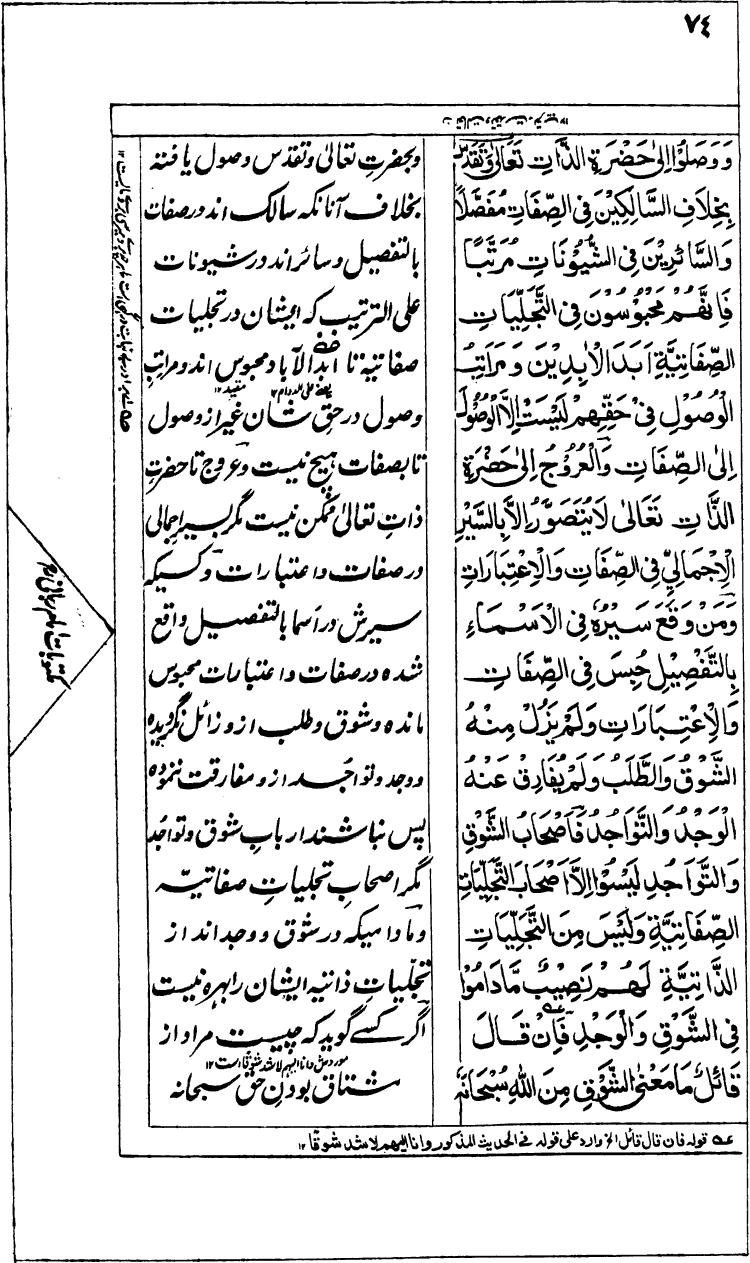 ٧٤
وَوَصَلُوْا اِلٰى حَضْرَةِ الذَّاتِ تَعَالٰى وَتَقَدَّسَ
بِخِلَافِ السَّالِكِيْنَ فِى الصِّفَاتِ مُفَصَّلًا
وَالسَّائِرِيْنَ فِى الشُّيُوْنَاتِ مُرَتَّبًا
فَاِنَّهُمْ مَحْبُوْسُوْنَ فِى التَّجَلِّيَاتِ
الصِّفَاتِيَّةِ اَبَدَ الْاٰبِدِيْنَ وَمَرَاتِبُ
الْوُصُوْلِ فِىْ حَقِّهِمْ لَيْسَتْ اِلَّا الْوُصُوْلَ
اِلَى الصِّفَاتِ وَالْعُرُوْجُ اِلٰى حَضْرَةِ
الذَّاتِ تَعَالٰى لَا يُتَصَوَّرُ اِلَّا بِالسَّيْرِ
الْاِجْمَالِيِّ فِى الصِّفَاتِ وَالْاِعْتِبَارَاتِ
وَمَنْ وَقَعَ سَيْرُهٗ فِى الْاَسْمَاءِ
بِالتَّفْصِيْلِ حُبِسَ فِى الصِّفَاتِ
وَالْاِعْتِبَارَاتِ وَلَمْ يَزُلْ مِنْهُ
الشَّوْقُ وَالطَّلَبُ وَلَمْ يُفَارِقْ عَنْهُ
الْوَجْدُ وَالتَّوَاجُدُ فَاَصْحَابُ الشَّوْقِ
وَالتَّوَاجُدِ لَيْسُوْا اِلَّا اَصْحَابَ التَّجَلِّيَاتِ
الصِّفَاتِيَّةِ وَلَيْسَ مِنَ التَّجَلِّيَاتِ
الذَّاتِيَّةِ لَهُمْ نَصِيْبٌ مَّا دَامُوْا
فِى الشَّوْقِ وَالْوَجْدِ فَاِنْ قَالَ
قَائِلٌ مَا مَعْنَى الشَّوْقِ مِنَ اللّٰهِ سُبْحَانَهٗ
وبحضرتِ تعالىٰ وتقدس وصول يافتہ
بخلاف آنانكہ سالك اند درصفات
بالتفصيل وسائر اند درشيونات
على الترتيب كہ ايشان درتجليات
صفاتيہ تا ابد الآباد محبوس اند ومراتبِ
يعنے على الدوام ١٢
وصول درحقِ شان غير از وصول
تا بصفات هيچ نيست وعروج تا حضرتِ
ذاتِ تعالىٰ ممكن نيست مگر بسير اجمالى
درصفات واعتبارات وكسيكہ
سيرش در اسما بالتفصيل واقع
شده درصفات واعتبارات محبوس
مانده وشوق وطلب از و زائل نگرديده
ووجد وتواجد از و مفارقت ننموده
پس نباشند اربابِ شوق وتواجد
مگر اصحابِ تجلياتِ صفاتيہ
وماداميكہ درشوق ووجد اند از
تجلّياتِ ذاتيہ ايشان را بهره نيست
اگر كسے گويد كہ چيست مراد از
مشتاق بودنِ حق سبحانہ
مكتوبات امام ربانى
قولہ فان قال قائل الخ وارد على قولہ فے الحديث المذكور وانا اليهم لاشد شوقا ١٢